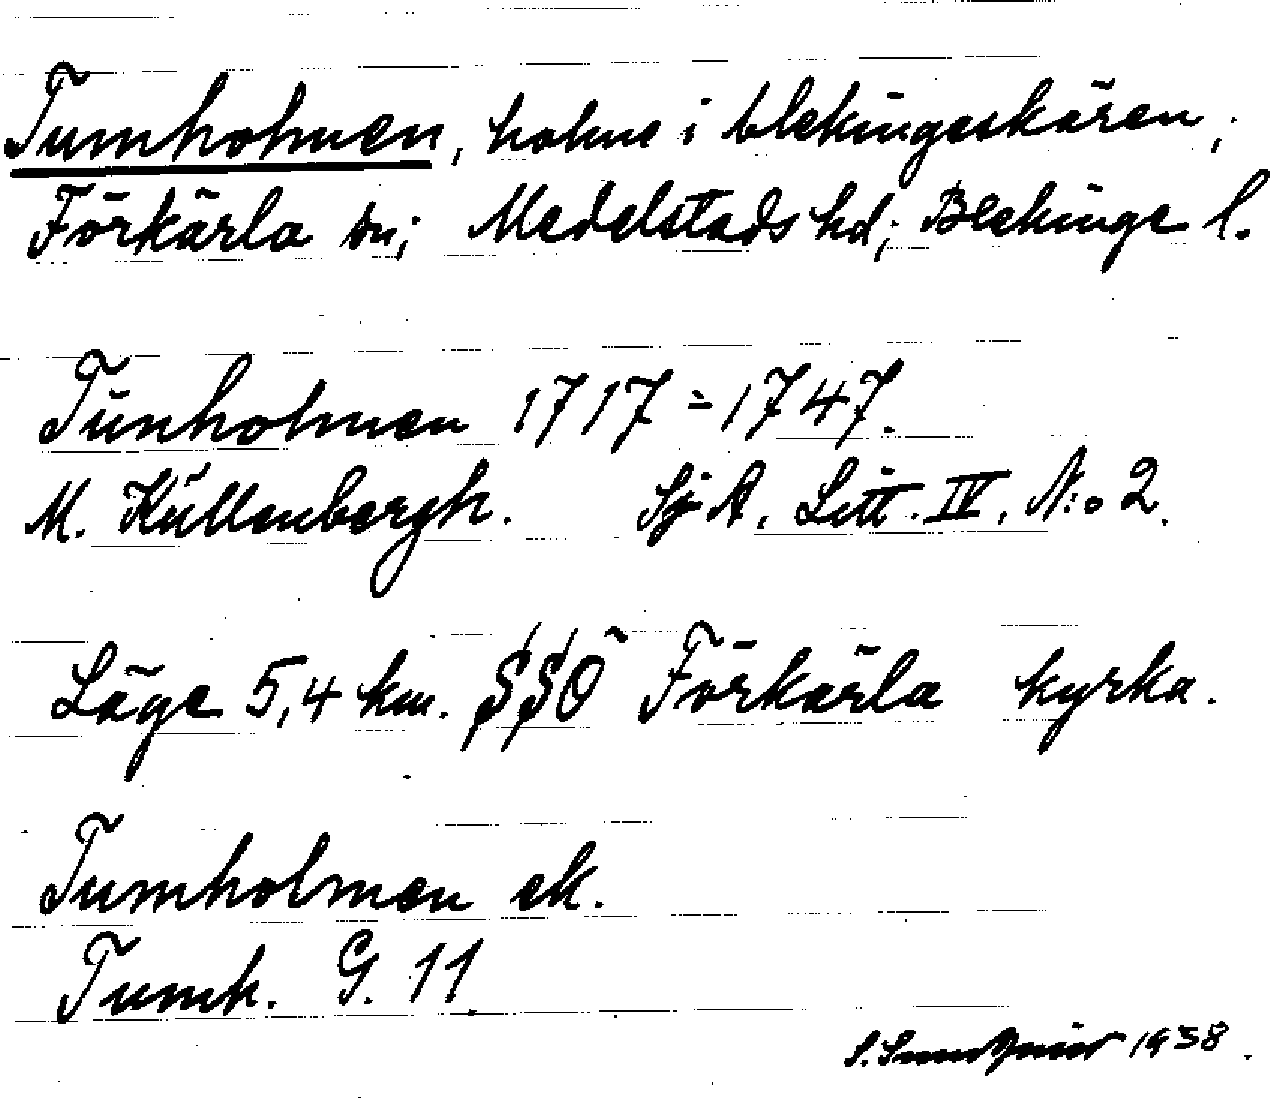 Tumholmen, holme i blekingeskären,
Förkärla sn; Medelstads hd; Blekinge l.
Tŭnholmen 1717 = 1747.
M. Kŭllenbergh. Sj A. Litt. IV, N:o 2.
Läge 5,4 km. SSÖ Förkärla kyrka.
Tumholmen ek.
Tumh. G. 11
S. Sundqvist 1938.